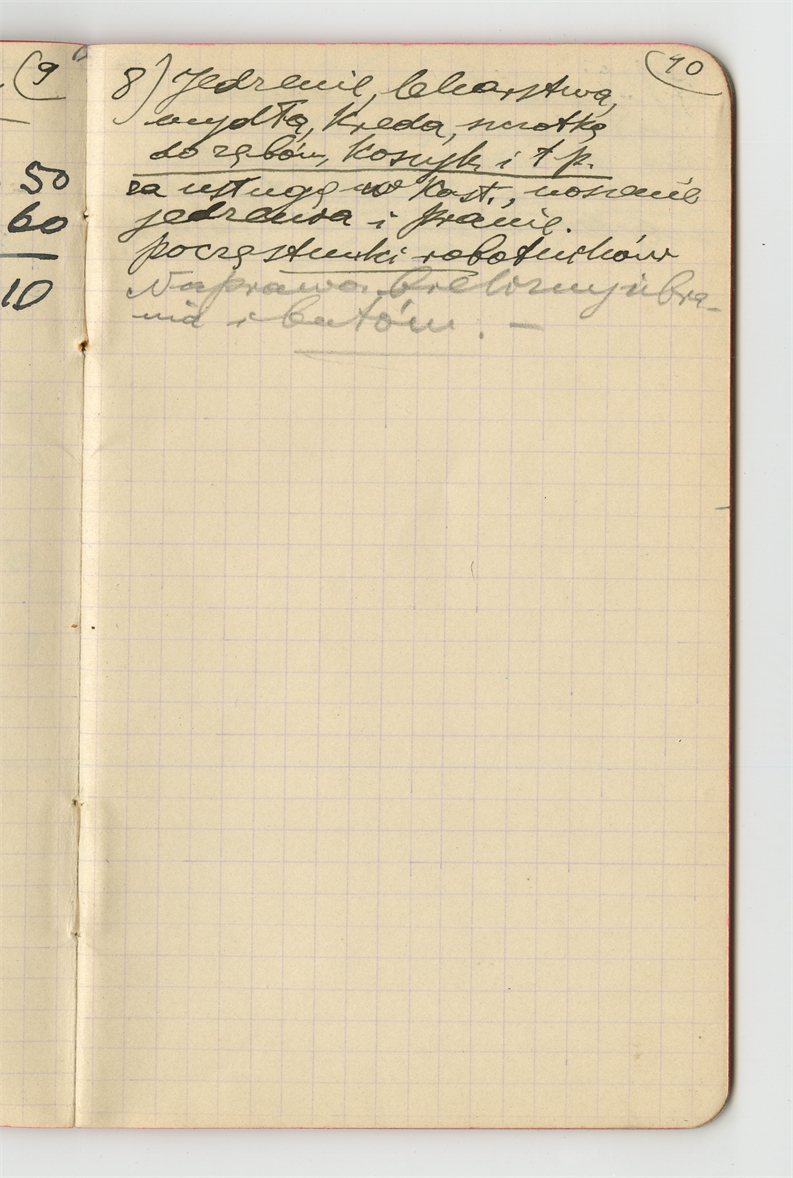 (9
50
60
10
(10
8) Jedzenie, lekarstwa,
mydła, kreda, szczotka
do zębów, koszyk i t p.
za usługę w Kast., noszenie
jedzenia i pranie.
poczęstunki robotników
Naprawa bielizny, ubra-
nia i butów. —